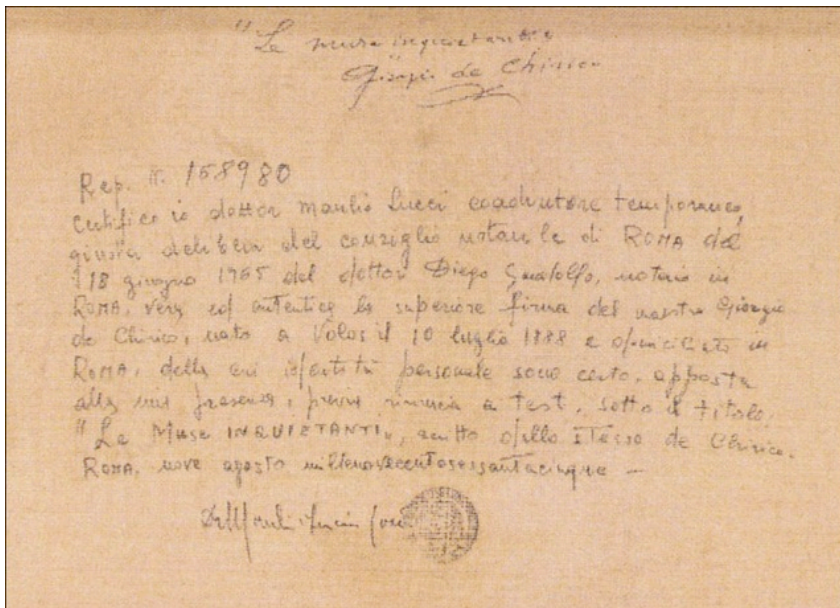 "Le muse inquietanti"
Giorgio de Chirico
Rep. N. 158980
Certifico io dottor Manlio Lucci coadiutore temporaneo,
giusta delibera del consiglio notarile di ROMA del
18 giugno 1965 del dottor Diego Gandolfo, notaio in
ROMA, vera ed autentica la superiore firma del maestro Giorgio
de Chirico, nato a Volos il 10 luglio 1888 e domiciliato in
ROMA, della cui identità personale sono certo, apposta
alla mia presenza, previa rinuncia a test. sotto il titolo
"Le Muse INQUIETANTI", scritto dallo stesso de Chirico.
ROMA, nove agosto millenovecentosessantacinque —